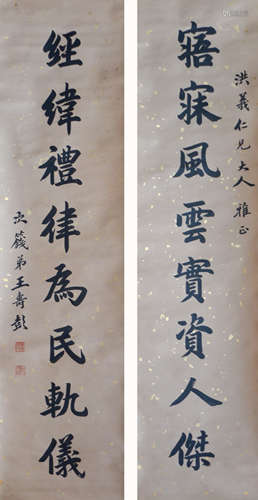 寤寐風雲實資人傑
洪義仁兄大人雅正
經緯禮律為民軌儀
次籛弟王壽彭